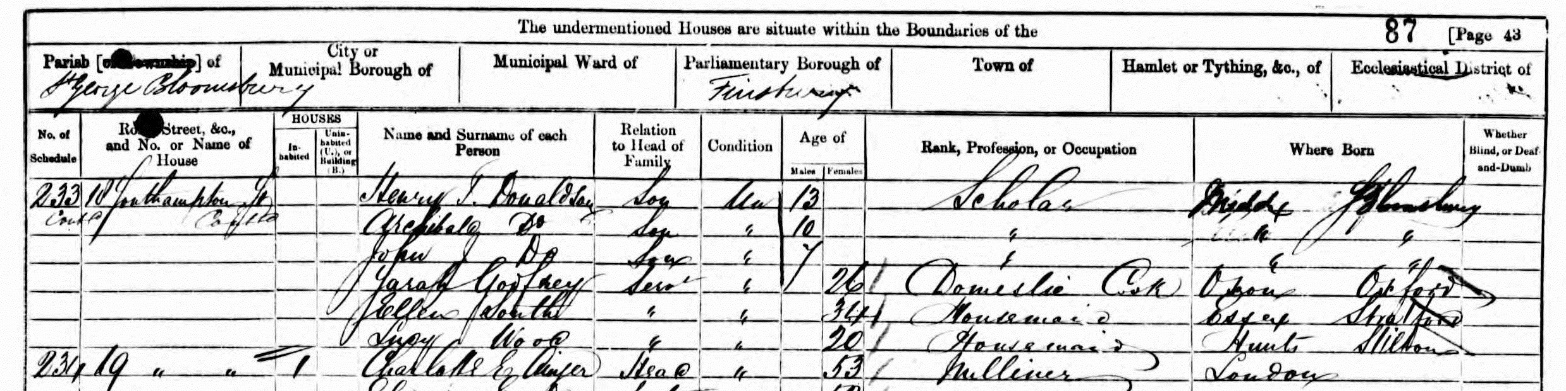 The undermentioned Houses are situate within the Boundaries of the 87 [Page 43
Parish [or Township] of City or Municipal Borough of Municipal Ward of Parliamentary Borough of Town of Hamlet or Tything, &c., of Ecclesiastical District of
St George Bloomsbury Finsbury
No. of Schedule Road, Street, &c., and No. or Name of House HOUSES Inhabited Uninhabited (U.), or Building (B.) Name and Surname of each Person Relation to Head of Family Condition Age of Males Females Rank, Profession, or Occupation Where Born Whether Blind, or Deaf-and-Dumb
233 18 Southampton St Henry T. Donaldson Son Un 13 Scholar Middx Bloomsbury
Contd Archibald Do Son " 10 " " "
John Do Son " 7 " " "
Sarah Godfrey Servt " 26 Domestic Cook Oxon Oxford
Ellen South " " 34 Housemaid Essex Stratford
Lucy Wood " " 20 Housemaid Hunts Stilton
234 19 " " 1 Charlotte E Head " 53 Milliner London